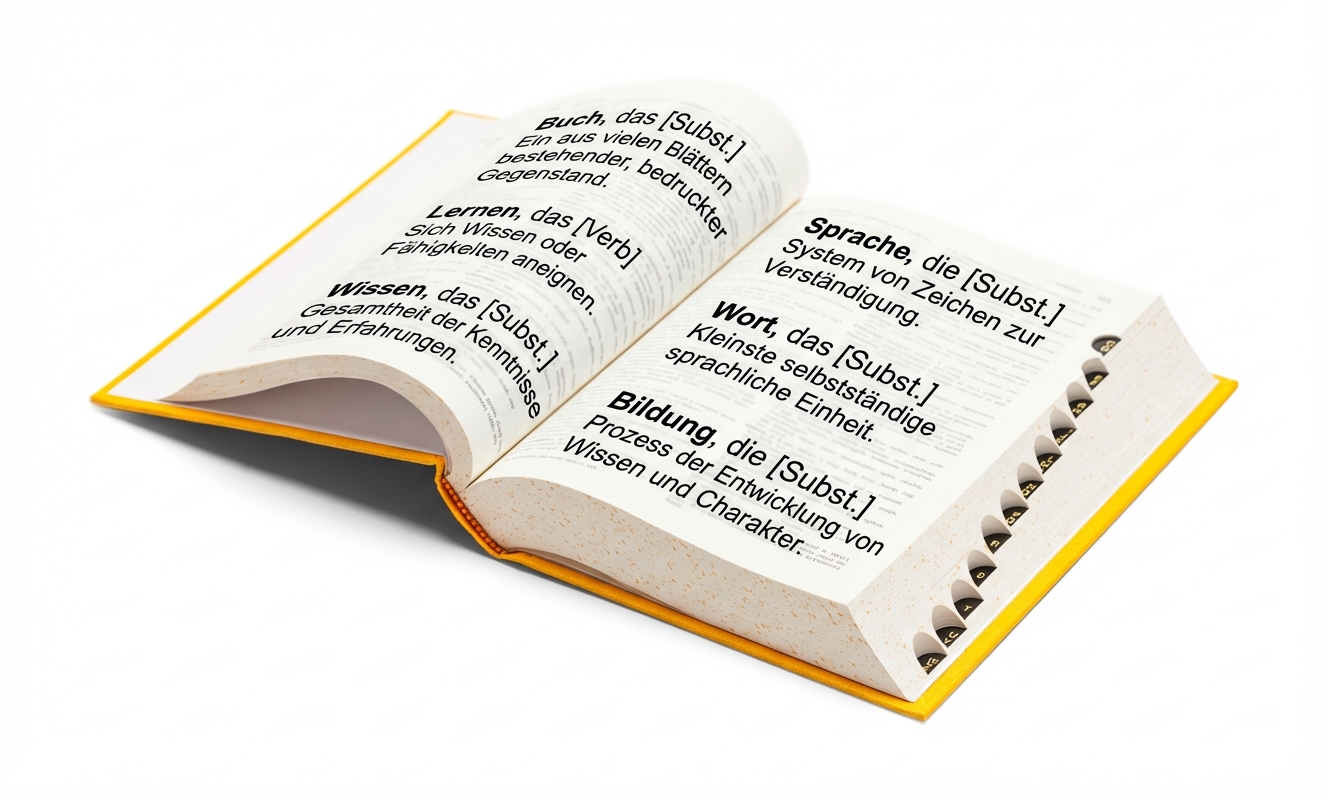 Buch, das [Subst.]
Ein aus vielen Blättern
bestehender, bedruckter
Gegenstand.
Lernen, das [Verb]
Sich Wissen oder
Fähigkeiten aneignen.
Wissen, das [Subst.]
Gesamtheit der Kenntnisse
und Erfahrungen.
Sprache, die [Subst.]
System von Zeichen zur
Verständigung.
Wort, das [Subst.]
Kleinste selbstständige
sprachliche Einheit.
Bildung, die [Subst.]
Prozess der Entwicklung von
Wissen und Charakter.